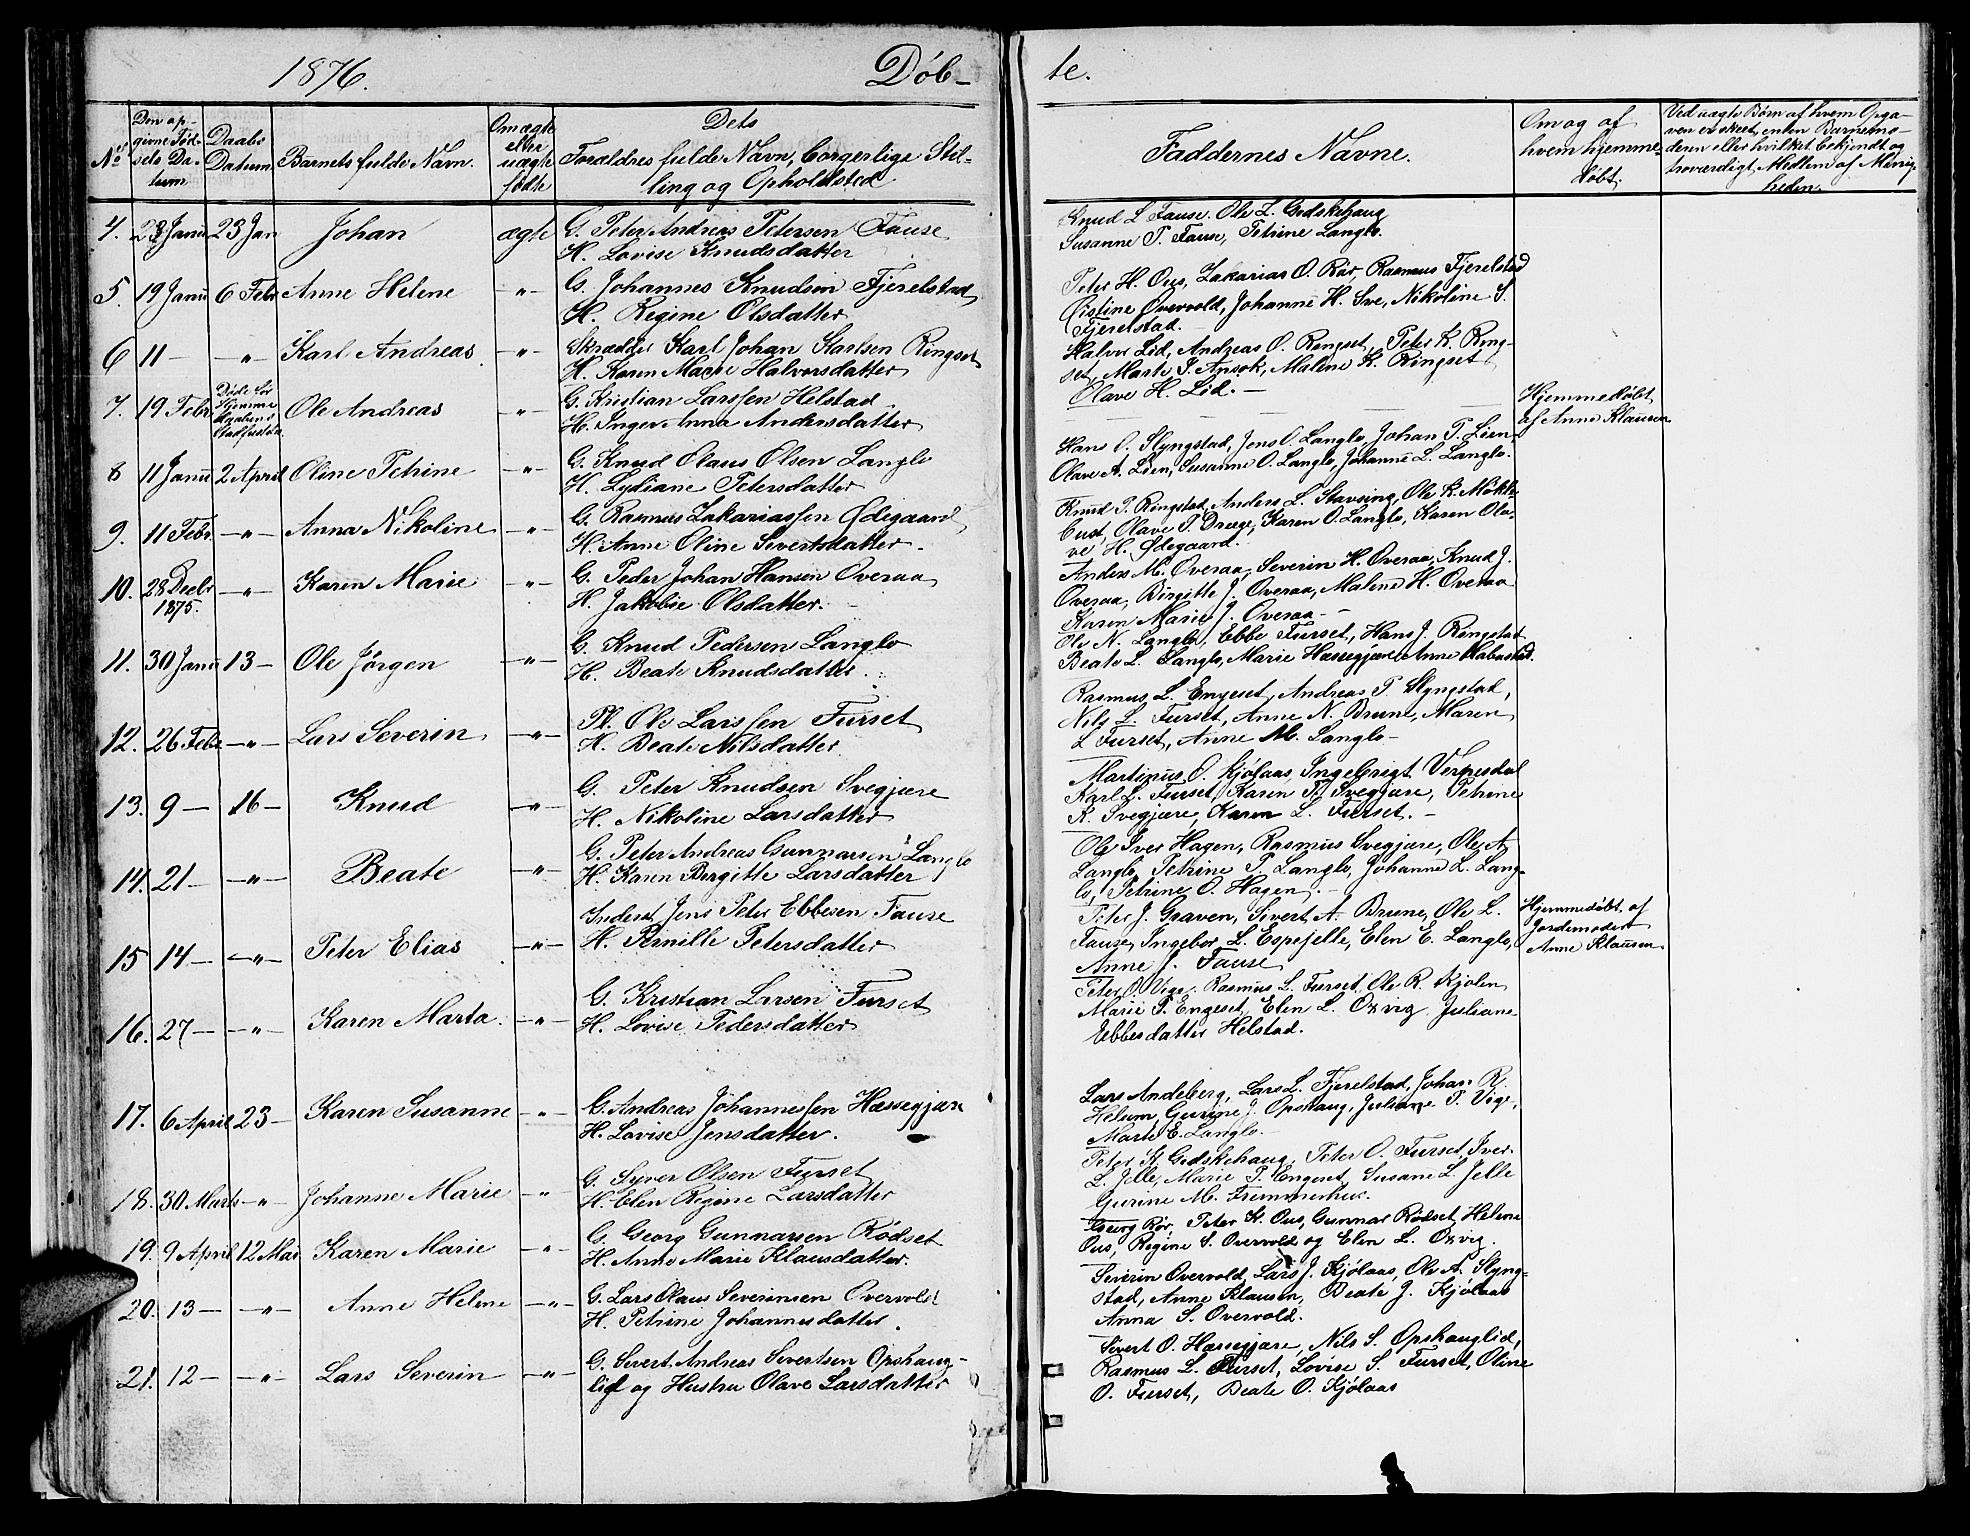 1876. Døb-
te.
No
Den op-
givne Fød-
sels Da-
tum
Daabs
Datum
Barnets fulde Navn.
Om ægte
eller
uægte
fødte
Dets
Forældres fulde Navn, borgerlige Stil-
ling og Opholdsted
Faddernes Navne.
Om og af
hvem hjemme-
døbt.
Ved uægte Børn af hvem Opga-
ven er skeet, enten Barnemo-
deren eller hvilket bekjendt og
troværdigt Medlem af Menig-
heden
4. 23 Janu 23 Jan Johan ægte G. Peter Andreas Petersen Fause
H. Lovise Knudsdatter
Knud L Fause. Ole L. Gedskehaug
Susanne P. Fause, Petrine Langlo.
5. 19 Janu 6 Febr Anne Helene -"- G. Johannes Knudsen Fjerelstad
H. Regine Olsdatter
Peter H. Ous, Zakarias O. Rør, Rasmus Fjerelstad
Oistine Overvold, Johanne H. Sve, Nikoline S.
Fjerelstad.
6 11 - -"- Karl Andreas. -"- Skrædder Karl Johan Karlsen Ringset
H. Karen Marie Halvorsdatter
Halvor Lid, Andreas O. Ringset, Peter K. Ring-
set, Marte J. Ansok, Malene K. Ringset
Olave H. Lid. -
7. 19 Febr Døde før
Hjemme
daabens
Stadfæstelse
Ole Andreas -"- G. Kristian Larssen Helstad.
H. Inger Anna Andersdatter
Hjemmedøbt
af Anne Klausen
8 11 Janu 2 April Oline Petrine -"- G. Knud Olaus Olsen Langlo
H. Lydiane Petersdatter
Hans O. Slyngstad, Jens O. Langlo, Johan P. Lien
Olave A. Lien, Susanne O. Langlo, Johanne L. Langlo.
9. 11 Febr -"- Anna Nikoline -"- G. Rasmus Zakariassen Ødegaard
H. Anne Oline Sivertsdatter.
Knud P. Ringstad, Anders L. Stavsing, Ole K. Mökle-
bust, Olave P. Drage, Karen O. Langlo, Karen Ola-
ve H. Ødegaard.
10. 28 Decbr
1875.
-"- Karen Marie -"- G. Peder Johan Hansen Overaa
H. Jakobie Olsdatter.
Anders M. Overaa, Severin H. Overaa, Knud J.
Overaa, Birgitte J. Overaa, Malene H. Overaa
Karen Marie J. Overaa -
11. 30 Janu 13 - Ole Jørgen -"- G. Knud Pedersen Langlo
H. Beate Knudsdatter.
Ole N. Langlo, Ebbe Furset, Hans J. Ringstad
Beate L. Langlo, Marie Hassegjære Anne Habostad.
12. 26 Febr -"- Lars Severin -"- Pl. Ole Larssen Furset
H. Beate Nilsdatter
Rasmus L. Engeset, Andreas P. Slyngstad,
Nils L. Furset, Anne N. Brune, Maren
L Furset, Anne M. Langlo -
13. 9 - 16 - Knud -"- G. Peter Knudsen Svegjære
H. Nikoline Larsdatter
Martinus O. Kjölaas, Ingebrigt Verpesdal
Karl L. Furset, Karen P. Svegjære, Petrine
K. Svegjære, Karen L. Furset. -
14. 21 - -"- Beate -"- G. Peter Andreas Gunnarsen Langlo
H. Karen Birgitte Larsdatter
Ole Iver Hagen, Rasmus Svegjære, Ole A
Langlo, Petrine P. Langlo, Johanne L. Lang-
lo, Petrine O. Hagen. -
15 14 - -"- Peter Elias -"- Inderst Jens Peter Ebbesen Fause
H. Pernille Petersdatter
Peter J. Graven, Sivert A. Brune, Ole L.
Fause, Ingebor L. Espejelle, Elen E. Langlo,
Anne J. Fause
Hjemmedøbt af
Jordemoder
Anne Klausen
16. 27 - -"- Karen Marta. -"- G. Kristian Larsen Furset
H. Lovise Pedersdatter
Peter O. Vige. Rasmus L. Furset, Ole R. Kjölen
Marie P. Engeset, Elen L. Oxvig. Juliane
Ebbesdatter Helstad.
17. 6 April 23 - Karen Susanne -"- G. Andreas Johannessen Hassegjære
H. Lovise Jensdatter.
Lars Andeberg, Lars L. Fjerelstad, Johan R.
Helum, Gurine J. Opshaug, Juliane P. Vige,
Marte E. Langlo. -
18. 30 Marts -"- Johanne Marie -"- G. Syver Olsen Furset
H. Elen Regine Larsdatter
Peter K. Gedskehaug, Peter O. Furset, Iver
L. Jelle, Marie P. Engeset, Susane L. Jelle
Gurine M. Fremmerhus.
19. 9 April 12 Mai Karen Marie -"- G. Georg Gunnarsen Rødset
H. Anne Marie Klausdatter.
Georg Rør, Peter K. Ous, Gunnar Rødset, Helene
Ous, Regine S. Overvold og Elen L. Oxvig.
20. 13 - -"- Anne Helene -"- G. Lars Olaus Severinsen Overvold
H. Petrine Johannesdatter.
Severin Overvold, Lars J. Kjölaas, Ole A. Slyng-
stad, Anne Klausen, Beate J. Kjölaas
Anna S. Overvold.
21. 12 - -"- Lars Severin -"- G. Sivert Andreas Sivertsen Opshaug-
lid og Hustru Olave Larsdatter
Sivert O. Hassegjære, Nils S. Opshauglid,
Rasmus L. Furset, Lovise S. Furset, Oline
O. Furset, Beate O. Kjölaas